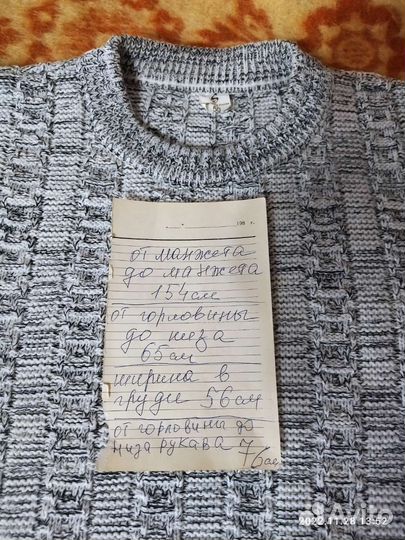 198 г.
от манжета
до манжета
154 см
от горловины
до низа
65 см
ширина в
груди 56 см
от горловины до
низа рукава 76 см
2022.11.28 13:52
Avito